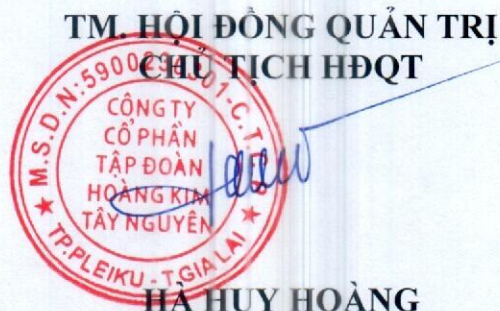 TM. HỘI ĐỒNG QUẢN TRỊ
CHỦ TỊCH HĐQT
M.S.D.N:
C.T.
CÔNG TY
CỔ PHẦN
TẬP ĐOÀN
HOÀNG KIM
TÂY NGUYÊN
TP.PLEIKU - T.GIA LAI
HÀ HUY HOÀNG